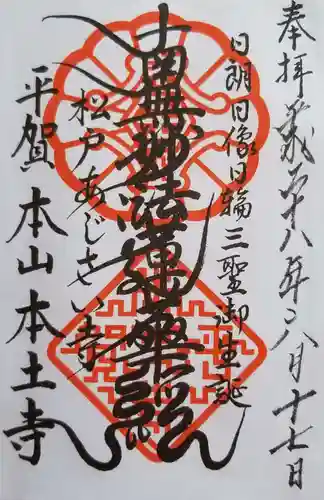 奉拝 八年八月十七日
日朗日像日輪三聖御生誕
南無妙法蓮華経
松戸あじさい寺
平賀 本山本土寺